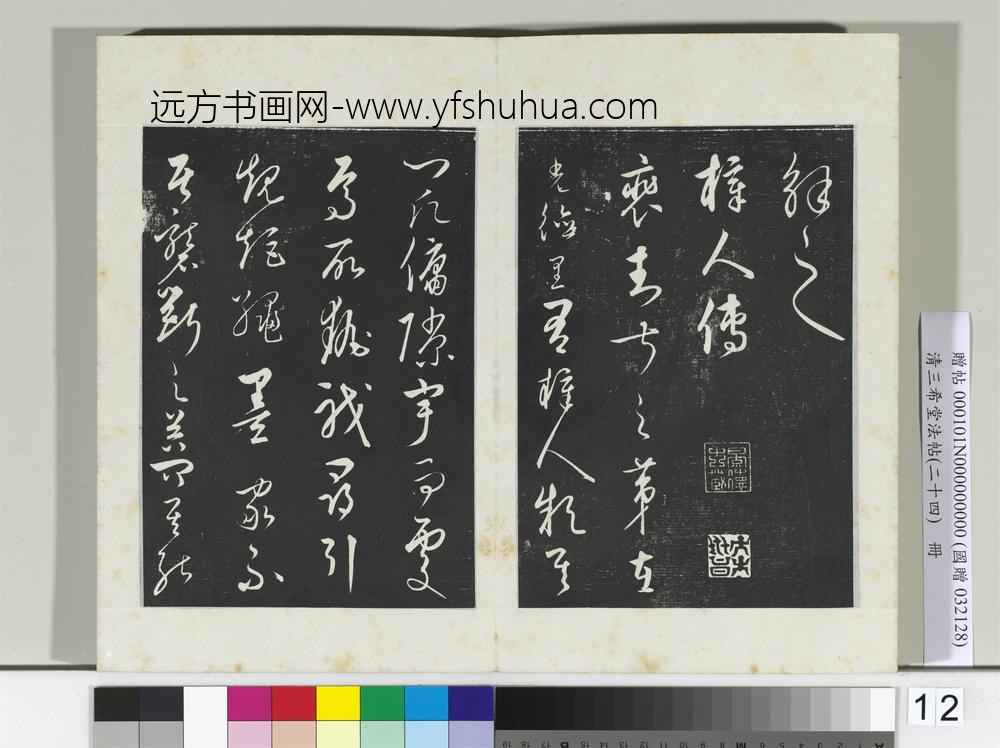 远方书画网-www.yfshuhua.com
解之
梓人傳
裴封叔之第在
光德里有梓人款其
門願傭隙宇而處
焉所執職尋引
規矩繩墨家不
居礱斲之器問其能
贈帖 000101N000000000 (國贈 032128)
清三希堂法帖(二十四) 冊
12